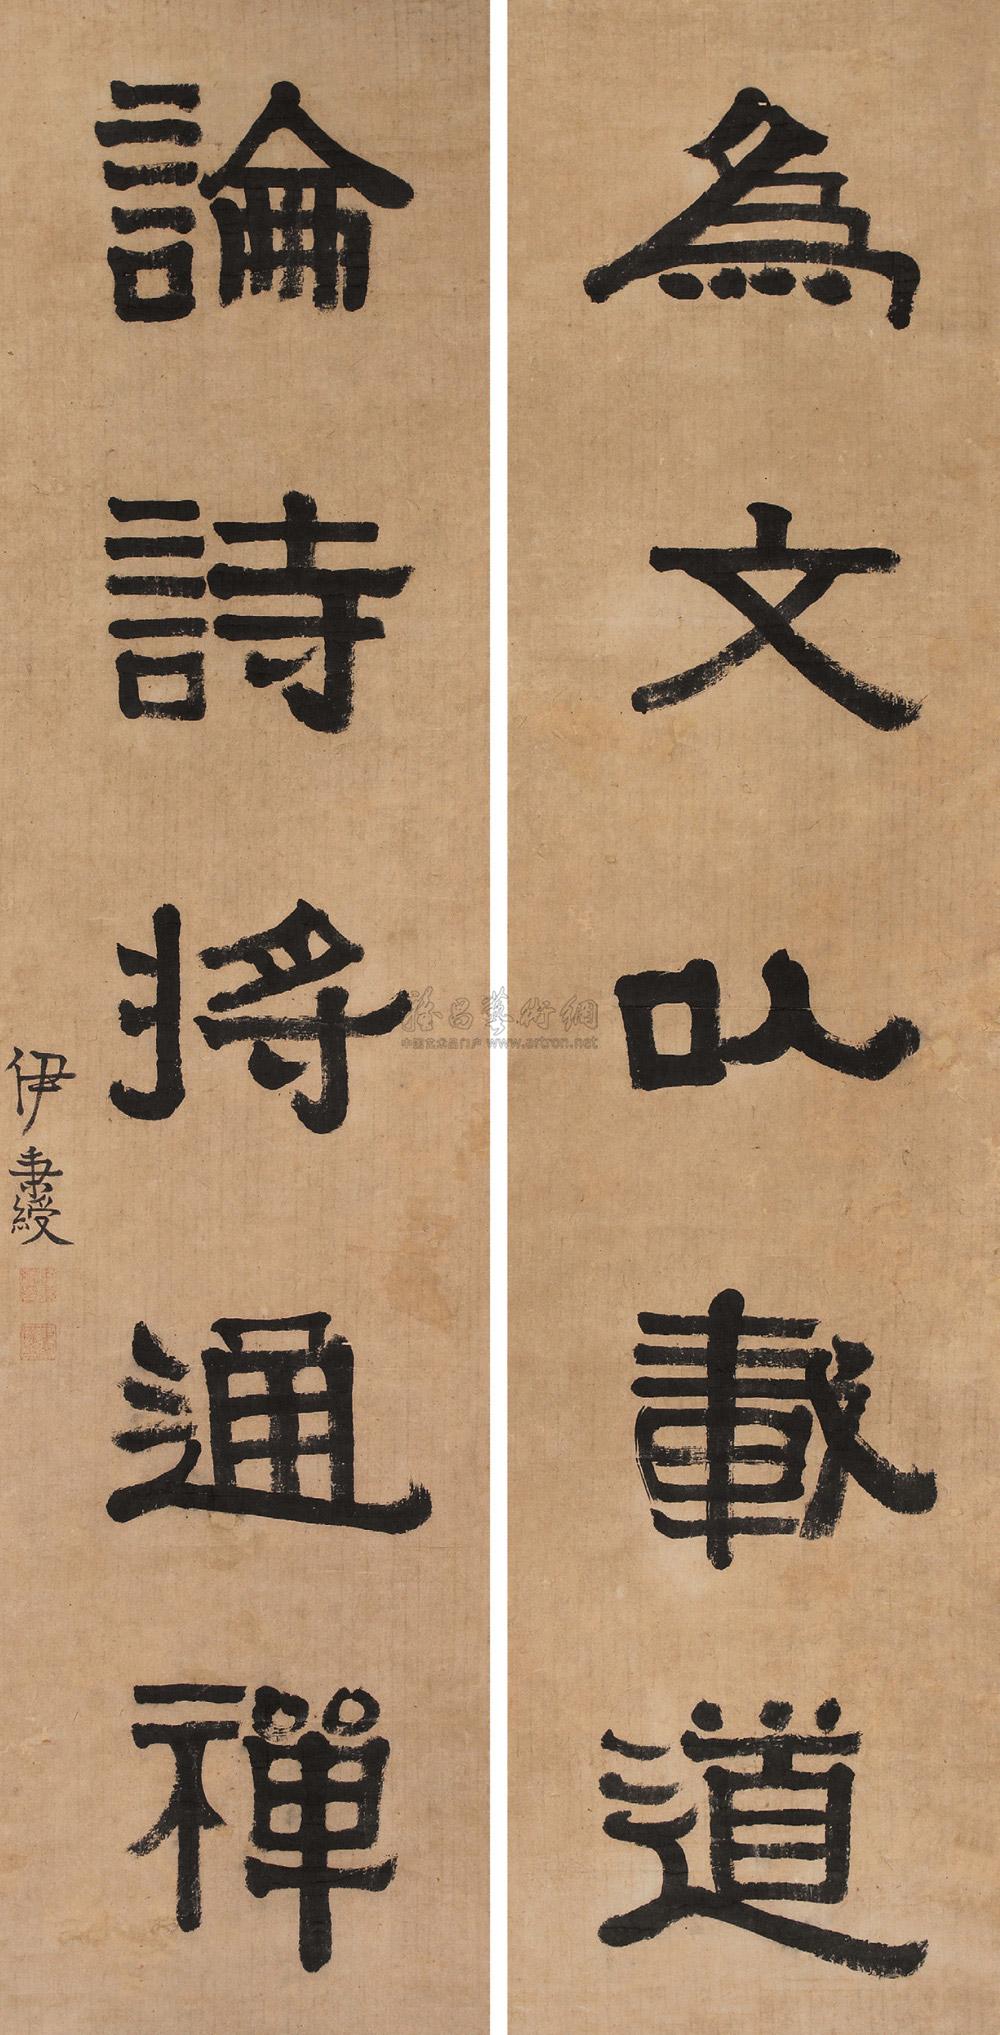 為文以載道
論詩將通禪
伊秉綬
雅昌藝術網
中国艺术品门户 www.artron.net